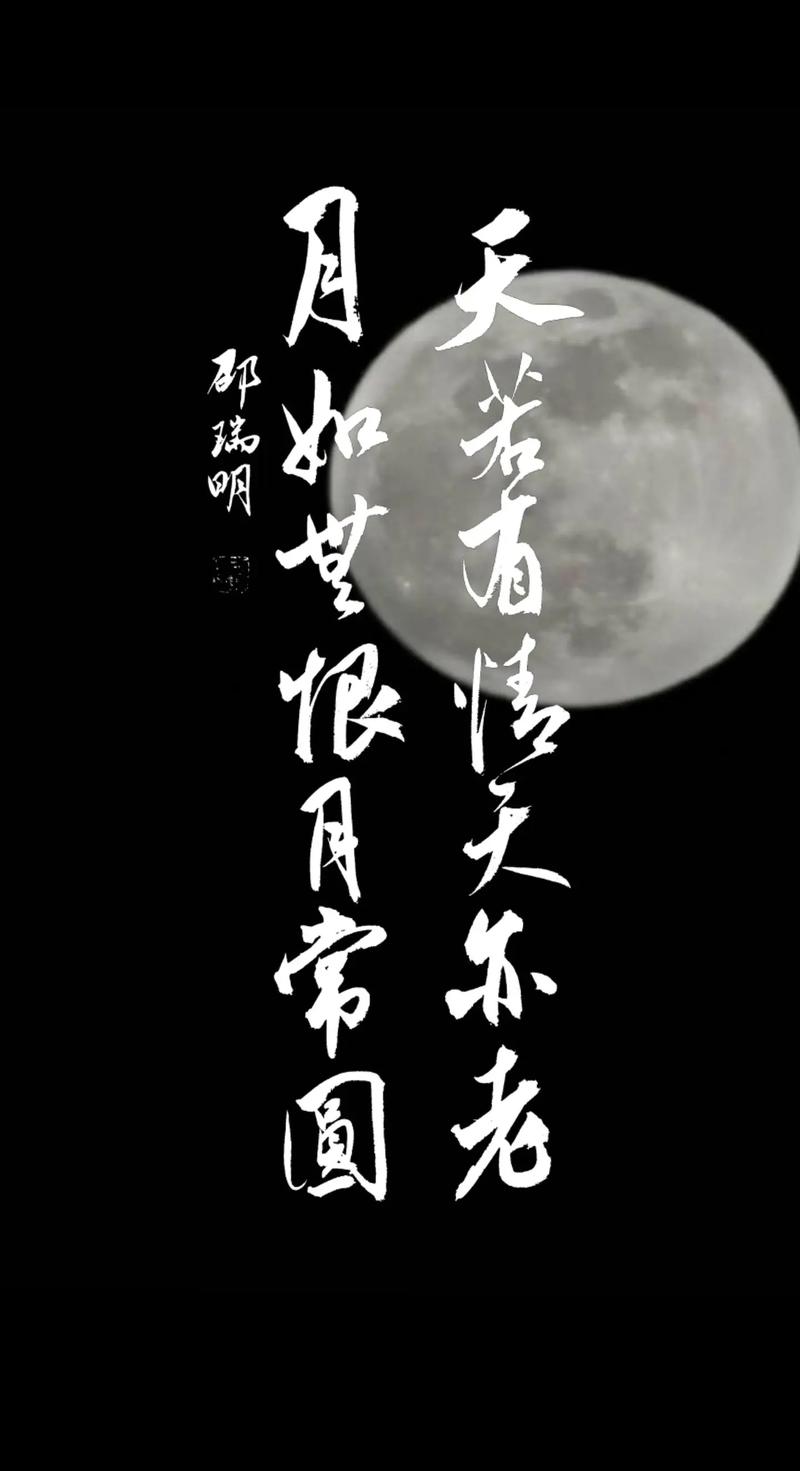 天若有情天亦老
月如無恨月常圓
邵瑞明